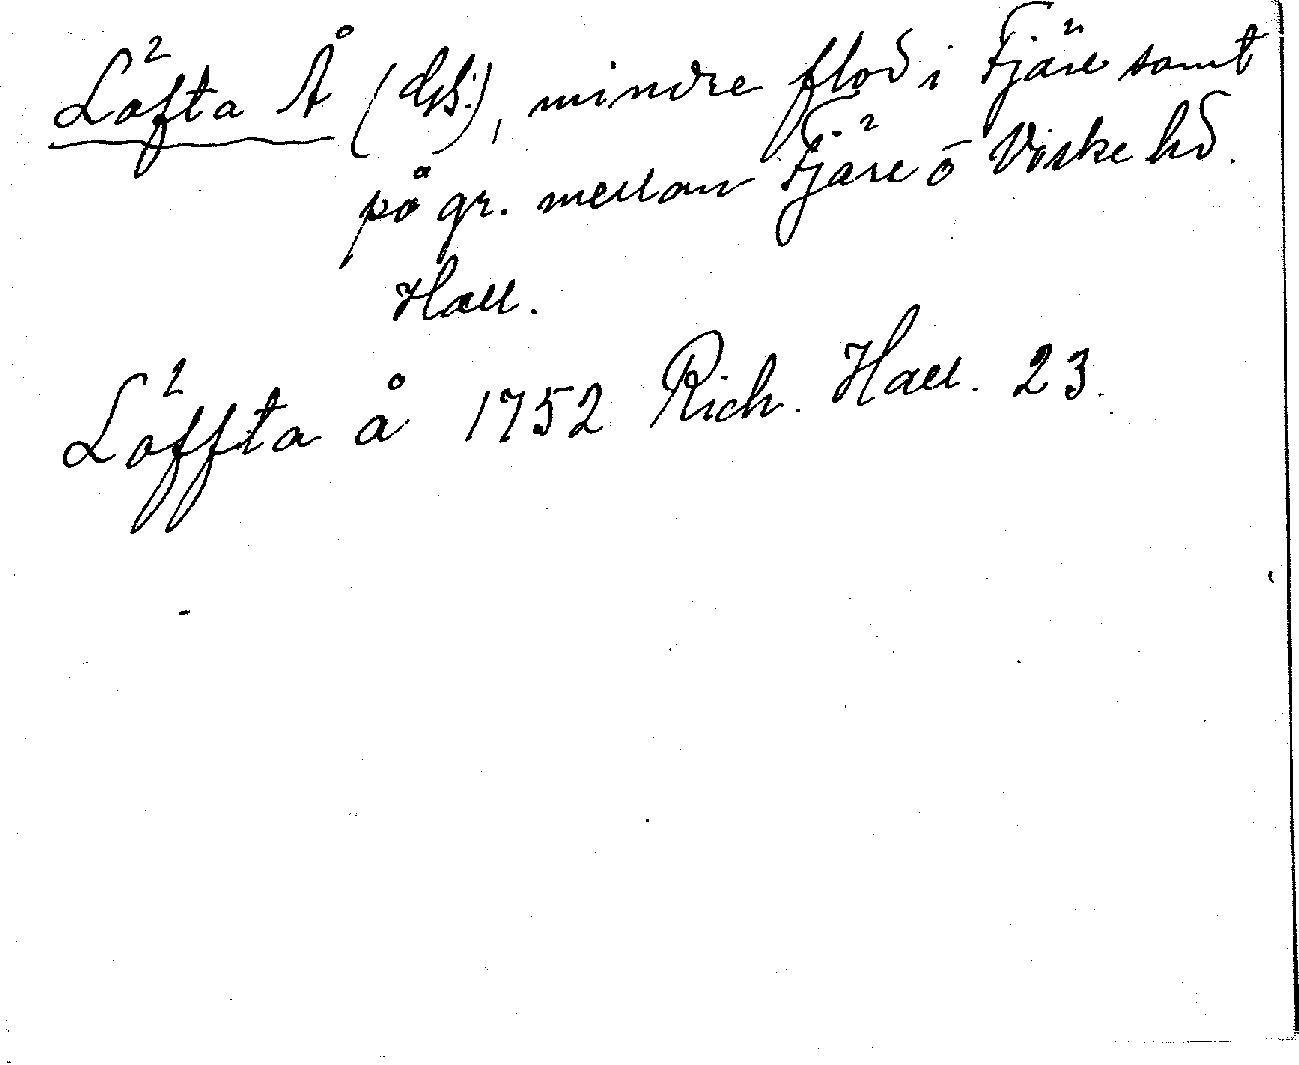 Löfta Å (Gsk.), mindre flod i Fjäre samt
på gr. mellan Fjäre ō Viske hd.
Hall.
Löffta å 1752 Rich. Hall. 23.